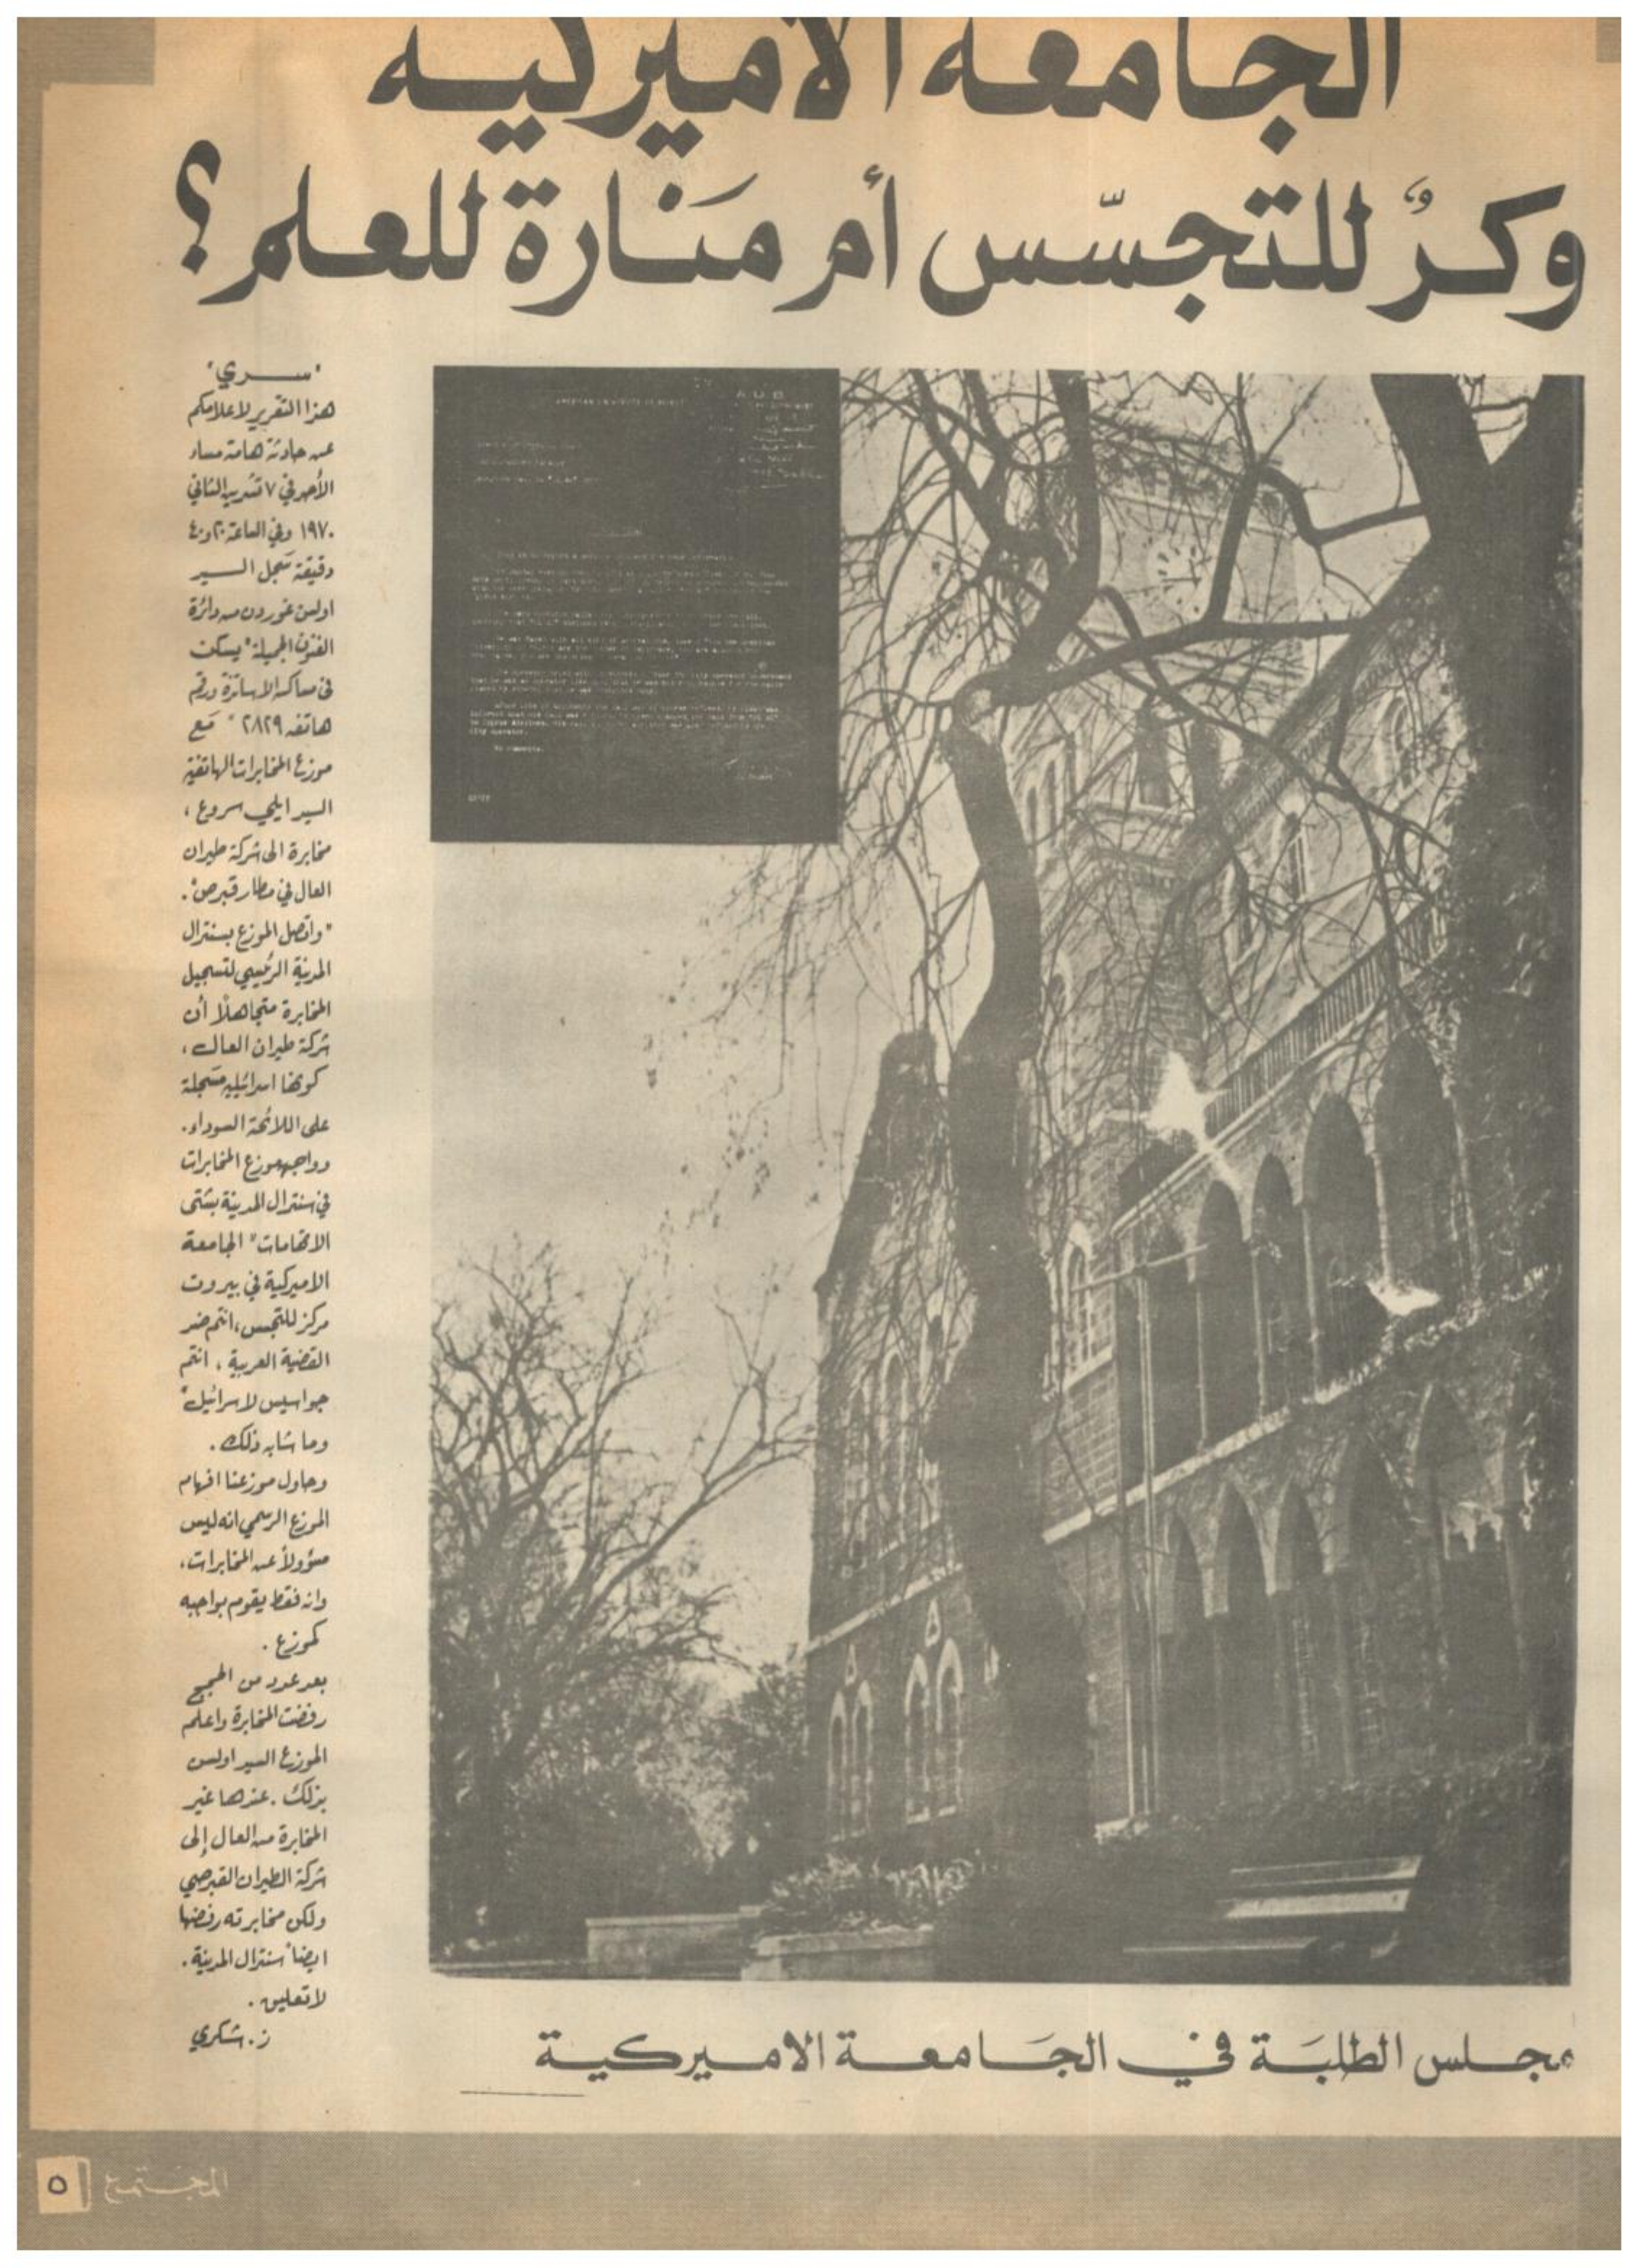 الجامعة الاميركية
وكرٌ للتجسّس أم مَنارة للعلم؟
"سري"
هذا التقرير لاعلامكم
عن حادثة هامة مساء
الأحد في ٧ تشرين الثاني
١٩٧٠ وفي الساعة ٢٠ و٤٠
دقيقة سَجل السيد
اولسن غوردن من دائرة
الفنون الجميلة "يسكن
في مساكن الاساتذة ورقم
هاتفه ٢٨٢٩" مَع
موزع المخابرات الهاتفية
السيد ايلي سروع ،
مخابرة الى شركة طيران
العال في مطار قبرص".
"واتصل الموزع بسنترال
المدينة الرئيسي لتسجيل
المخابرة متجاهلاً أن
شركة طيران العال ،
كونها اسرائيلية مسَجلة
على اللائحة السوداء.
وواجهه موزع المخابرات
في سنترال المدينة بشتى
الاتهامات "الجامعة
الاميركية في بيروت
مركز للتجسس ، انتم ضد
القضية العربية ، انتم
جواسيس لاسرائيل"
وما شابه ذلك .
وحاول موزعنا افهام
الموزع الرسمي انه ليس
مسؤولاً عن المخابرات ،
وانه فقط يقوم بواجبه
كموزع .
بعد عدد من الحجج
رفضت المخابرة واعلم
الموزع السيد اولسن
بذلك . عندها غير
المخابرة من العال إلى
شركة الطيران القبرصي
ولكن مخابرته رفضها
ايضاً سنترال المدينة .
لا تعليق .
ز . شكري
A U B
مجلس الطلبَة في الجَامعة الاميركية
المجتمع
٥